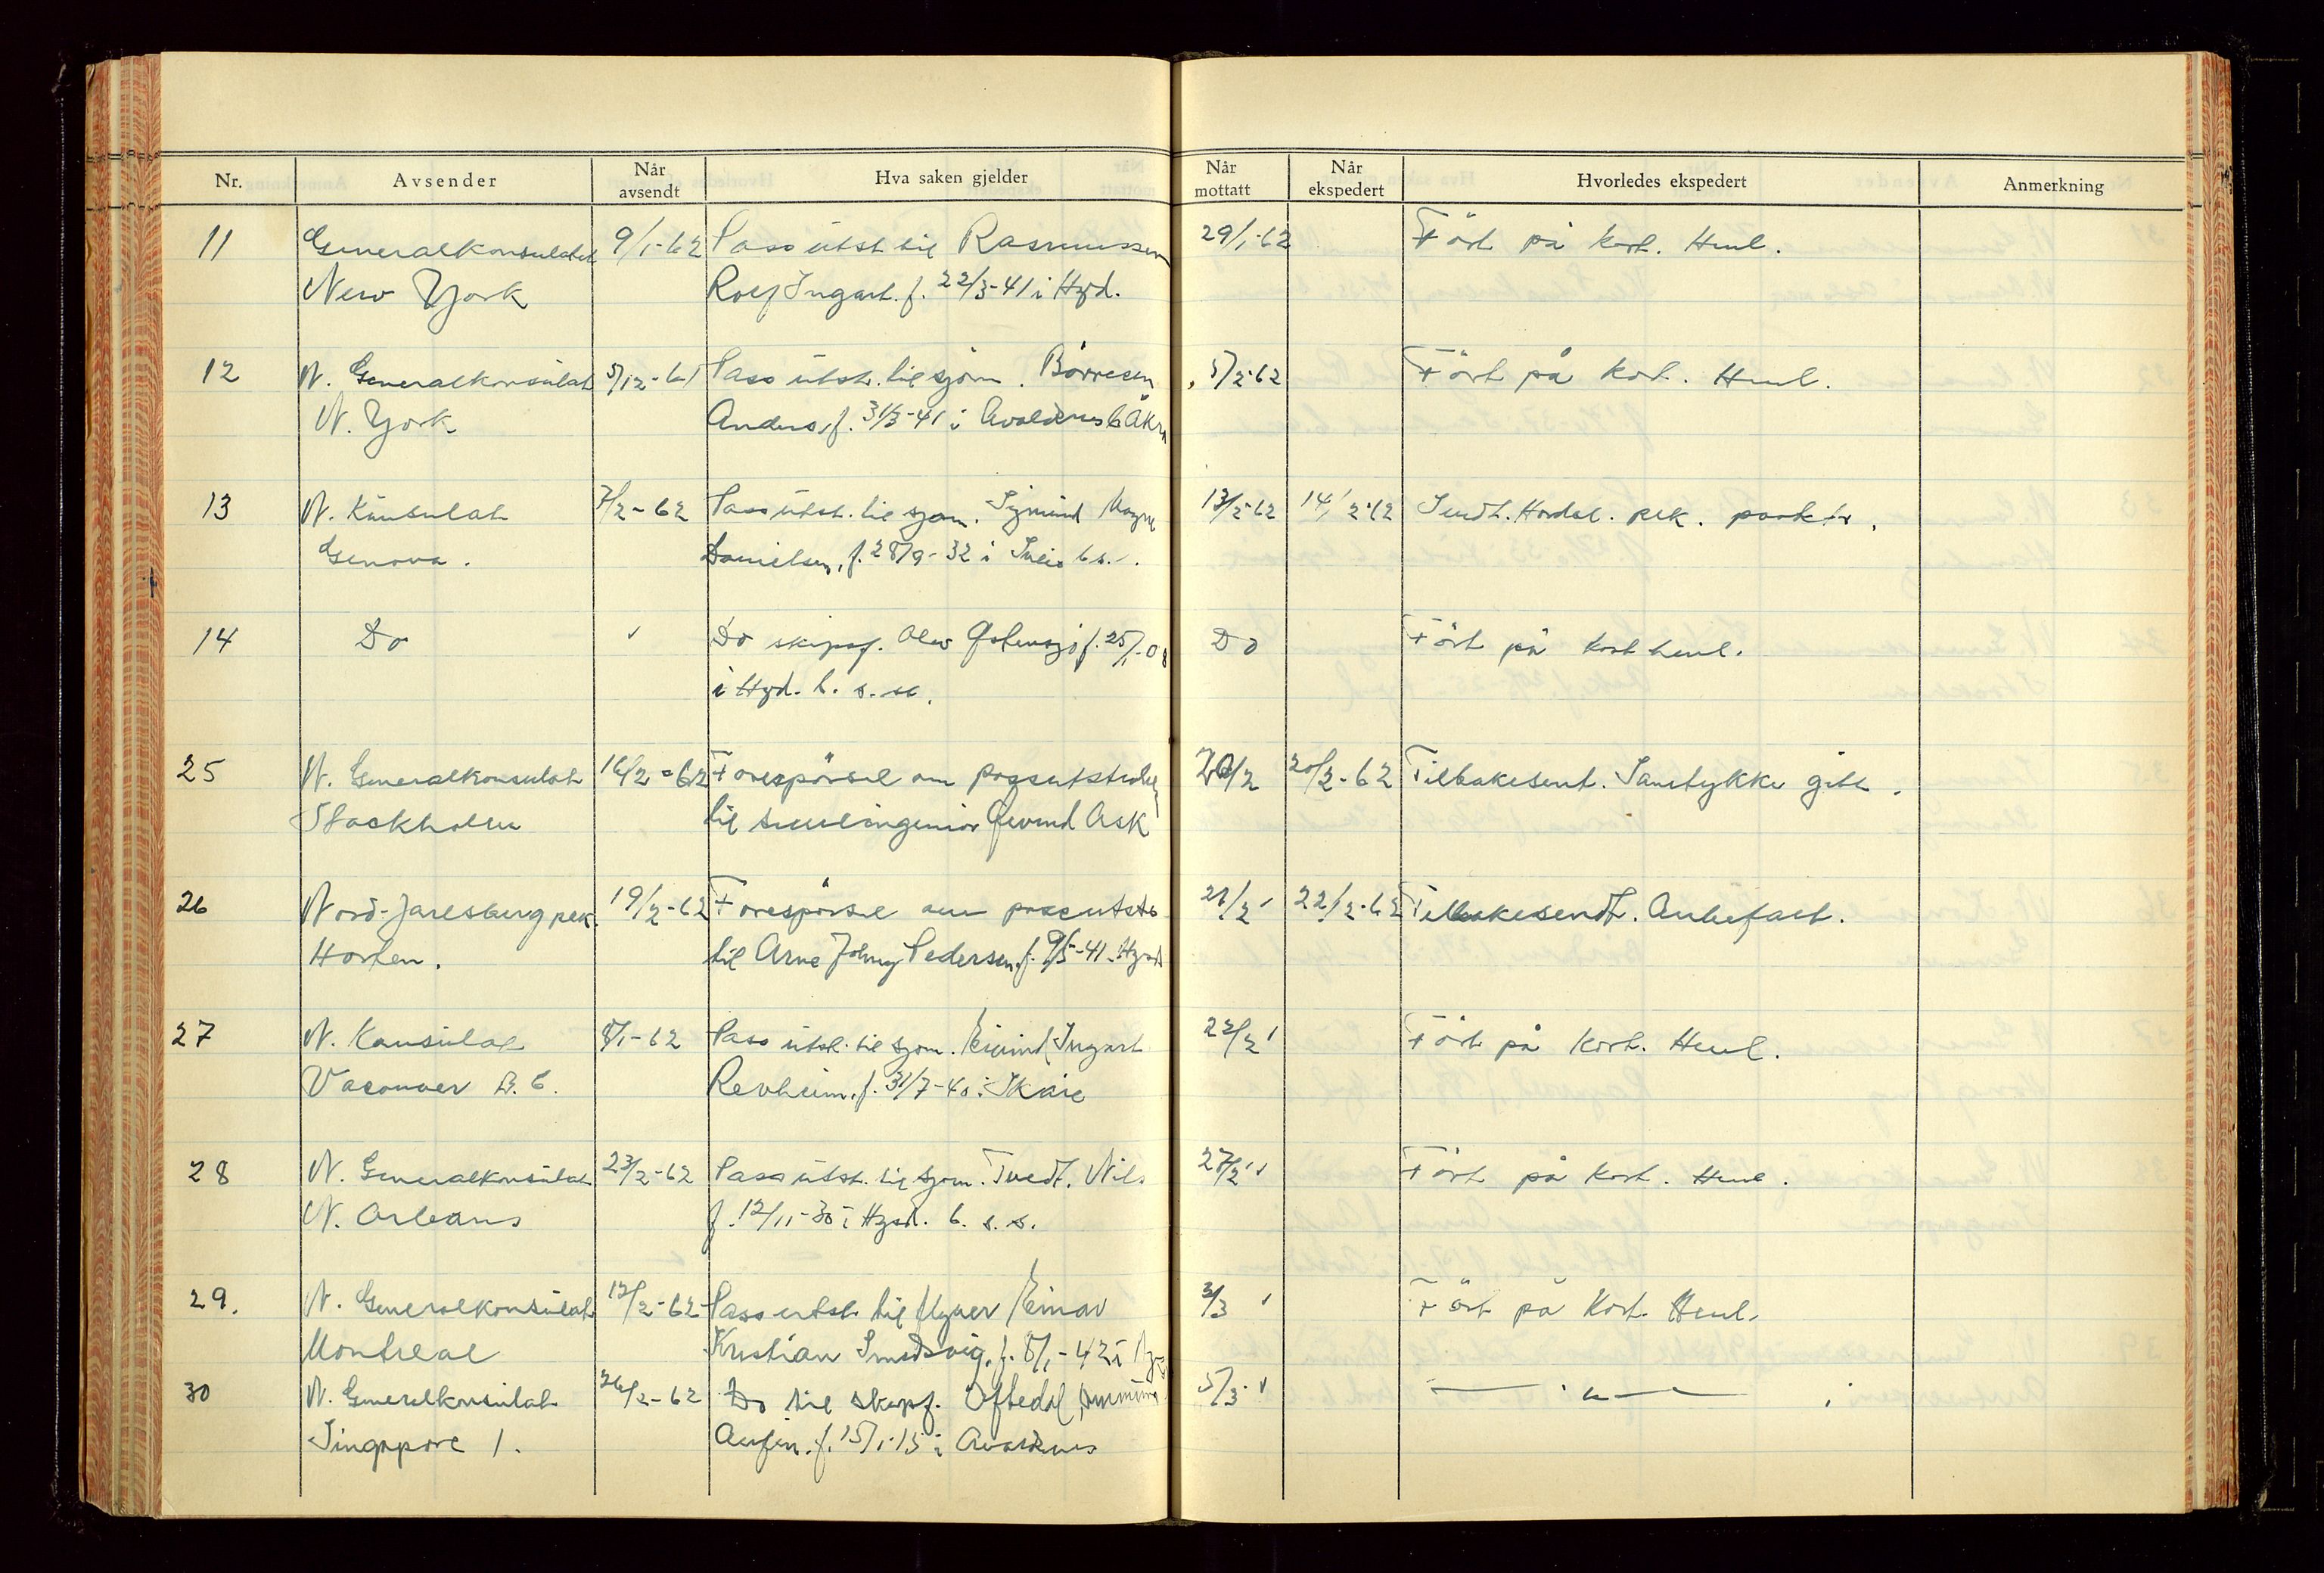 Nr. Avsender Når avsendt Hva saken gjelder Når mottatt Når ekspedert Hvorledes ekspedert Anmerkning
11 Generalkonsulatet 9/1-62 Pass utst til Rasmussen 29/1-62 Ført på kort. Henl.
New York Rolf Ingart. f. 22/3-41 i Hgd.
12 N. Generalkonsulat 5/12-61 Pass utst. til sjøm. Børresen 5/2-62 Ført på kort. Henl.
N. York Anders, f. 31/3-41 i Avaldsnes b Åkra
13 N. Konsulat 7/2-62 Pass utst. til sjøm. Sigmund Magne 13/2-62 14/2-62 Sendt. Hordal. pLk.
Genova. Danielsen, f. 28/9-32 i Sveio b s.
14 Do Do skipsf. Olav Østensjø f. 25/1-08 Do Ført på kort henl.
i Hgd. b. s. st.
25 N. Generalkonsulat 16/2-62 Forespørsel om passutstedelse 20/2 20/2-62 Tilbakesent. Samtykke gitt.
Stockholm til sivilingeniør Øivind Ask
26 Nord-Jarlsberg pLk. 19/2-62 Forespørsel om passutst. 21/2 22/2-62 Tilbakesendt. Anbefalt.
Horten. til Arne Johny Pedersen, f. 9/5-41 Hgsd
27 N. Konsulat 8/1-62 Pass utst. til sjøm. Eivind Ingart 22/2 Ført på kort. Henl.
Vacouver B.C. Revheim, f. 31/7-40 i Skåre
28 N. Generalkonsulat 23/2-62 Pass utst. til sjøm. Tvedt, Nils 27/2 Ført på kort. Henl.
N. Orleans f. 12/11-30 i Hgsd. b. s. s.
29. N. Generalkonsulat 12/2-62 Pass utst. til flyver Einar 3/3 Ført på kort. Henl.
Montreal Kristian Smedsvig, f. 8/1-42 i
30 N. Generalkonsulat 26/2-62 Do til skipsf. Oftedal, 5/3 — " —
Singapore 1. f. 15/1-15 i Avaldsnes